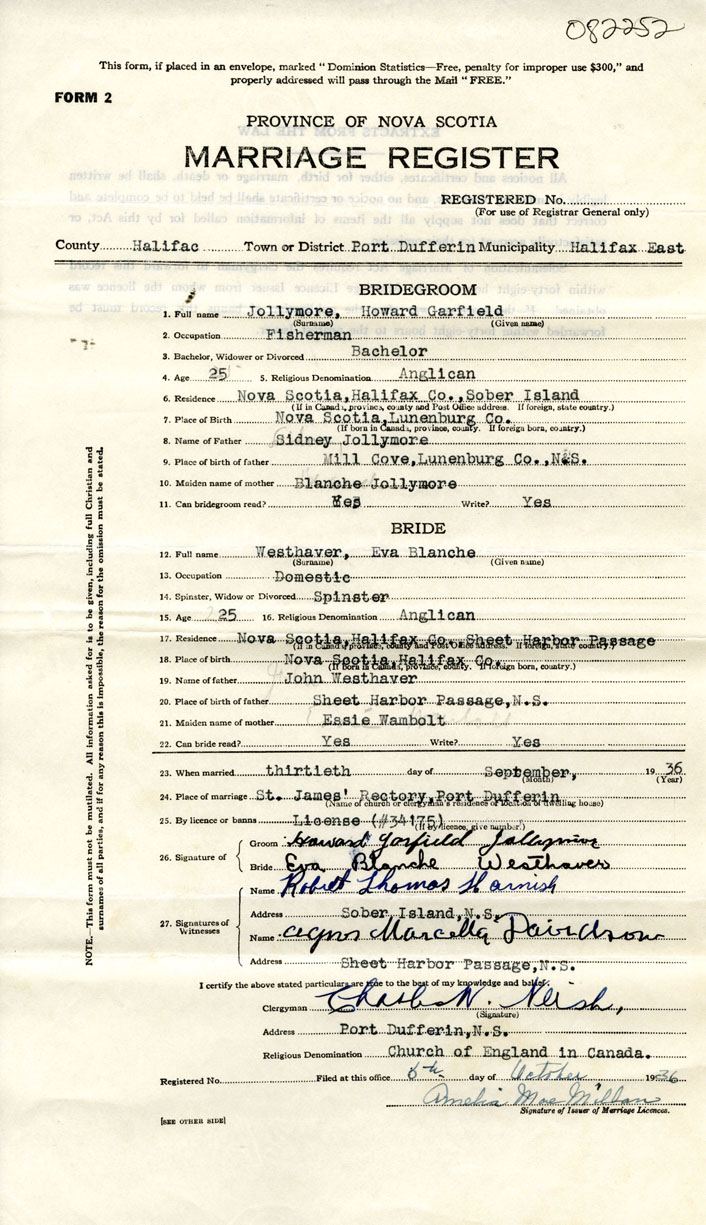 082252
This form, if placed in an envelope, marked "Dominion Statistics—Free, penalty for improper use $300," and
properly addressed will pass through the Mail "FREE."
FORM 2
PROVINCE OF NOVA SCOTIA
MARRIAGE REGISTER
REGISTERED No.
(For use of Registrar General only)
County Halifac Town or District Port Dufferin Municipality Halifax East
BRIDEGROOM
1. Full name Jollymore, Howard Garfield
(Surname) (Given name)
2. Occupation Fisherman
3. Bachelor, Widower or Divorced Bachelor
4. Age 25 5. Religious Denomination Anglican
6. Residence Nova Scotia,Halifax Co.,Sober Island
(If in Canada, province, county and Post Office address. If foreign, state country.)
7. Place of Birth Nova Scotia,Lunenburg Co.
(If born in Canada, province, county. If foreign born, country.)
8. Name of Father Sidney Jollymore
9. Place of birth of father Mill Cove,Lunenburg Co.,N.S.
10. Maiden name of mother Blanche Jollymore
11. Can bridegroom read? Yes Write? Yes
BRIDE
12. Full name Westhaver, Eva Blanche
(Surname) (Given name)
13. Occupation Domestic
14. Spinster, Widow or Divorced Spinster
15. Age 25 16. Religious Denomination Anglican
17. Residence Nova Scotia,Halifax Co. Sheet Harbor Passage
(If in Canada, province, county and Post Office address. If foreign, state country.)
18. Place of birth Nova Scotia,Halifax Co.
(If born in Canada, province, county. If foreign born, country.)
19. Name of father John Westhaver
20. Place of birth of father Sheet Harbor Passage,N.S.
21. Maiden name of mother Essie Wambolt
22. Can bride read? Yes Write? Yes
23. When married thirtieth day of September, 1936
(Month) (Year)
24. Place of marriage St. James' Rectory,Port Dufferin
(Name of church or clergyman's residence or location of dwelling house)
25. By licence or banns License (#34175)
(If by licence, give number.)
26. Signature of Groom Howard Garfield Jollymore
Bride Eva Blanche Westhaver
27. Signatures of Witnesses
Name Robert Thomas Harnish
Address Sober Island,N.S.
Name Agnes Marcella Davidson
Address Sheet Harbor Passage,N.S.
I certify the above stated particulars are true to the best of my knowledge and belief.
Clergyman Charles W. Neish,
(Signature)
Address Port Dufferin,N.S.
Religious Denomination Church of England in Canada.
Registered No. Filed at this office 6th day of October 1936
Amelia MacMillan
Signature of Issuer of Marriage Licences.
[SEE OTHER SIDE]
NOTE.—This form must not be mutilated. All information asked for is to be given, including full Christian and
surnames of all parties, and if for any reason this is impossible, the reason for the omission must be stated.